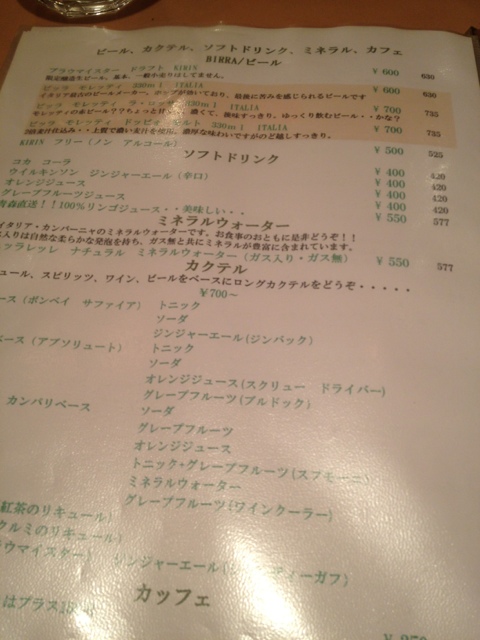 ビール、カクテル、ソフトドリンク、ミネラル、カフェ
BIRRA/ビール
ブラウマイスター ドラフト KIRIN ¥600 630
限定醸造生ビール。基本、一般小売りはしてません。
ビッラ モレッティ 330ml ITALIA ¥600 630
イタリア最古のビールメーカー。ホップが効いており、最後に苦みを感じられるビールです
ビッラ モレッティ ラ・ロッサ 330ml ITALIA ¥700 735
モレッティの赤ビール??ちょっと甘い、濃くて、後味すっきり。ゆっくり飲むビール・・かな?
ビッラ モレッティ ドッピォ・モルト 330ml ITALIA ¥700 735
2倍麦汁仕込み・・上質で濃い麦汁を使用。濃厚な味わいですがのど越しすっきり。
KIRIN フリー(ノン アルコール) ¥500 525
ソフトドリンク
コカ コーラ ¥400 420
ウイルキンソン ジンジャーエール(辛口) ¥400 420
オレンジジュース ¥400 420
グレープフルーツジュース ¥400 420
青森直送!!100%リンゴジュース・・美味しい・・ ¥550 577
ミネラルウォーター
イタリア・カンパーニャのミネラルウォーターです。お食事のおともに是非どうぞ!!
ス入りは自然な柔らかな発泡を持ち、ガス無と共にミネラルが豊富に含まれています。
ッラレッレ ナチュラル ミネラルウォーター(ガス入り・ガス無) ¥550 577
カクテル
ュール、スピリッツ、ワイン、ビールをベースにロングカクテルをどうぞ・・・・・
¥700~
ース(ボンベイ サファイア) トニック
ソーダ
ジンジャーエール(ジンバック)
ース(アブソリュート) トニック
ソーダ
オレンジジュース(スクリュー ドライバー)
グレープフルーツ(ブルドック)
カンパリベース ソーダ
グレープフルーツ
オレンジジュース
トニック+グレープフルーツ(スプモーニ)
ミネラルウォーター
グレープフルーツ(ワインクーラー)
紅茶のリキュール)
クルミのリキュール)
ラウマイスター) ジンジャーエール(シ ディーガフ)
カッフェ
はプラス